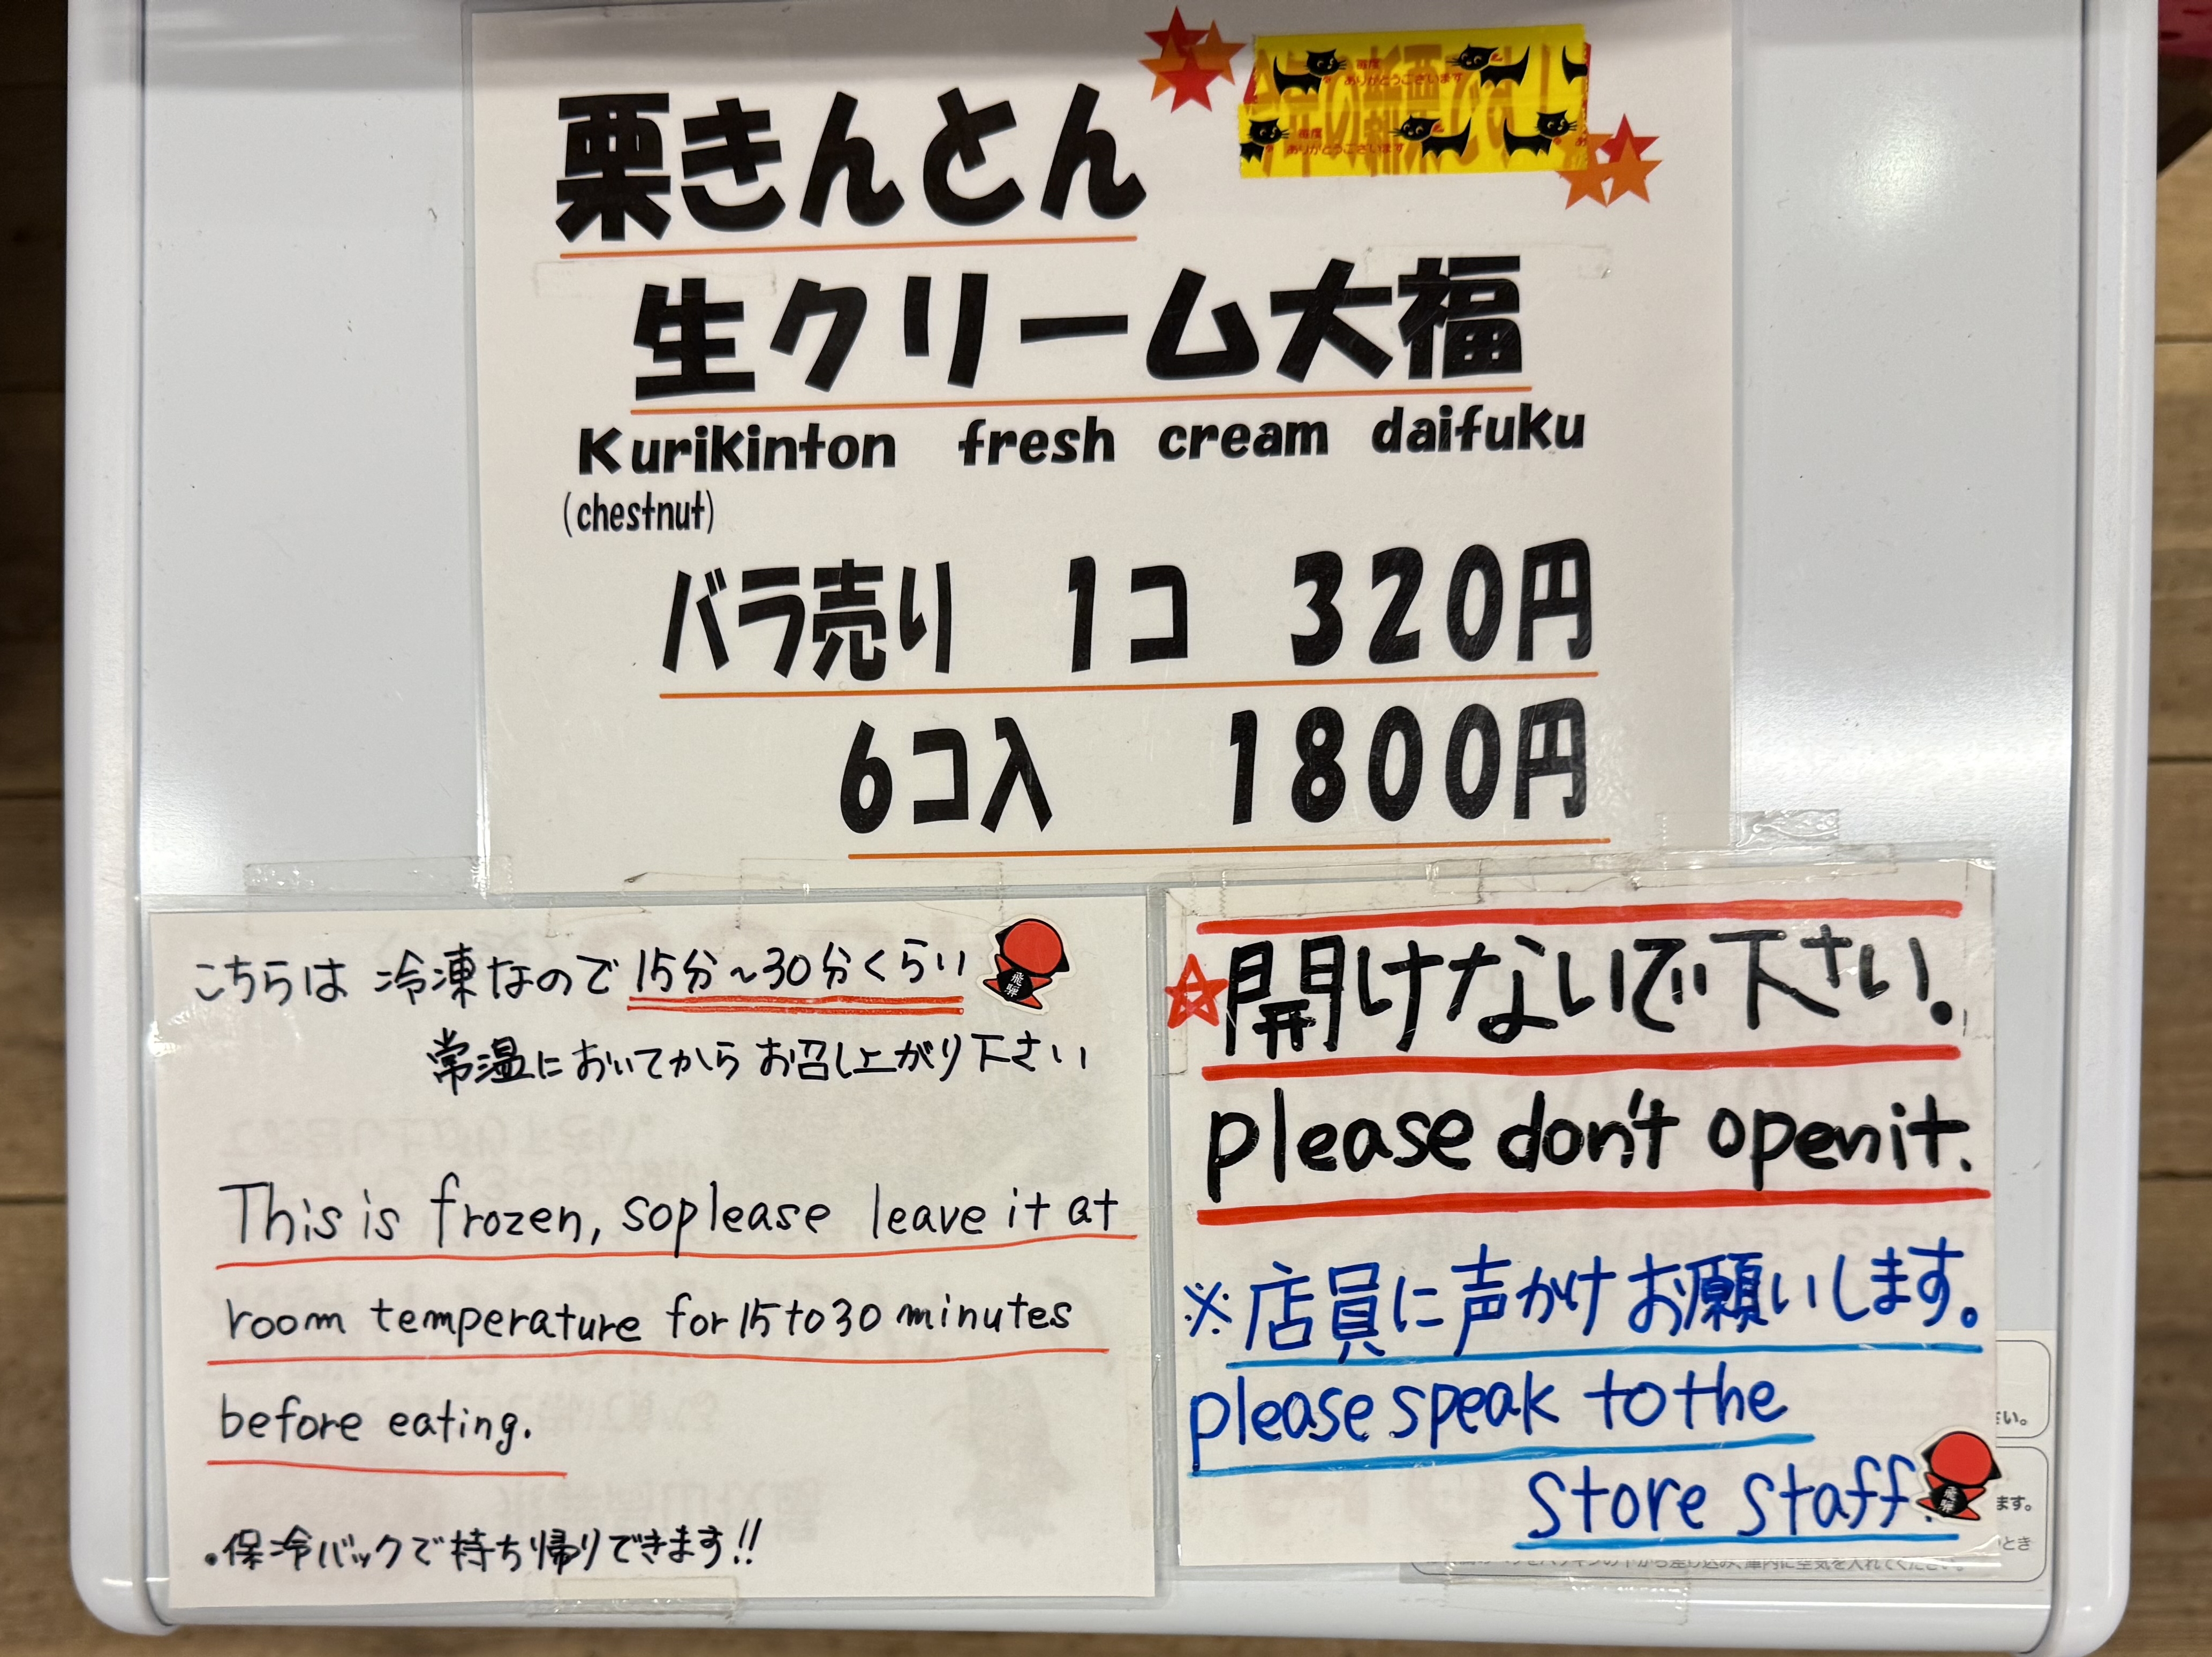 栗きんとん
毎度
ありがとうございます
毎度
ありがとうございます
生クリーム大福
Kurikinton fresh cream daifuku
(chestnut)
バラ売り 1コ 320円
6コ入 1800円
こちらは 冷凍なので 15分~30分くらい
飛騨
常温においてから お召し上がり下さい
This is frozen, so please leave it at
room temperature for 15 to 30 minutes
before eating.
・保冷バックで持ち帰りできます!!
☆開けないで下さい.
please don't open it.
※店員に声かけお願いします。
please speak to the
store staff.
飛騨
さい。
ます。
いとき